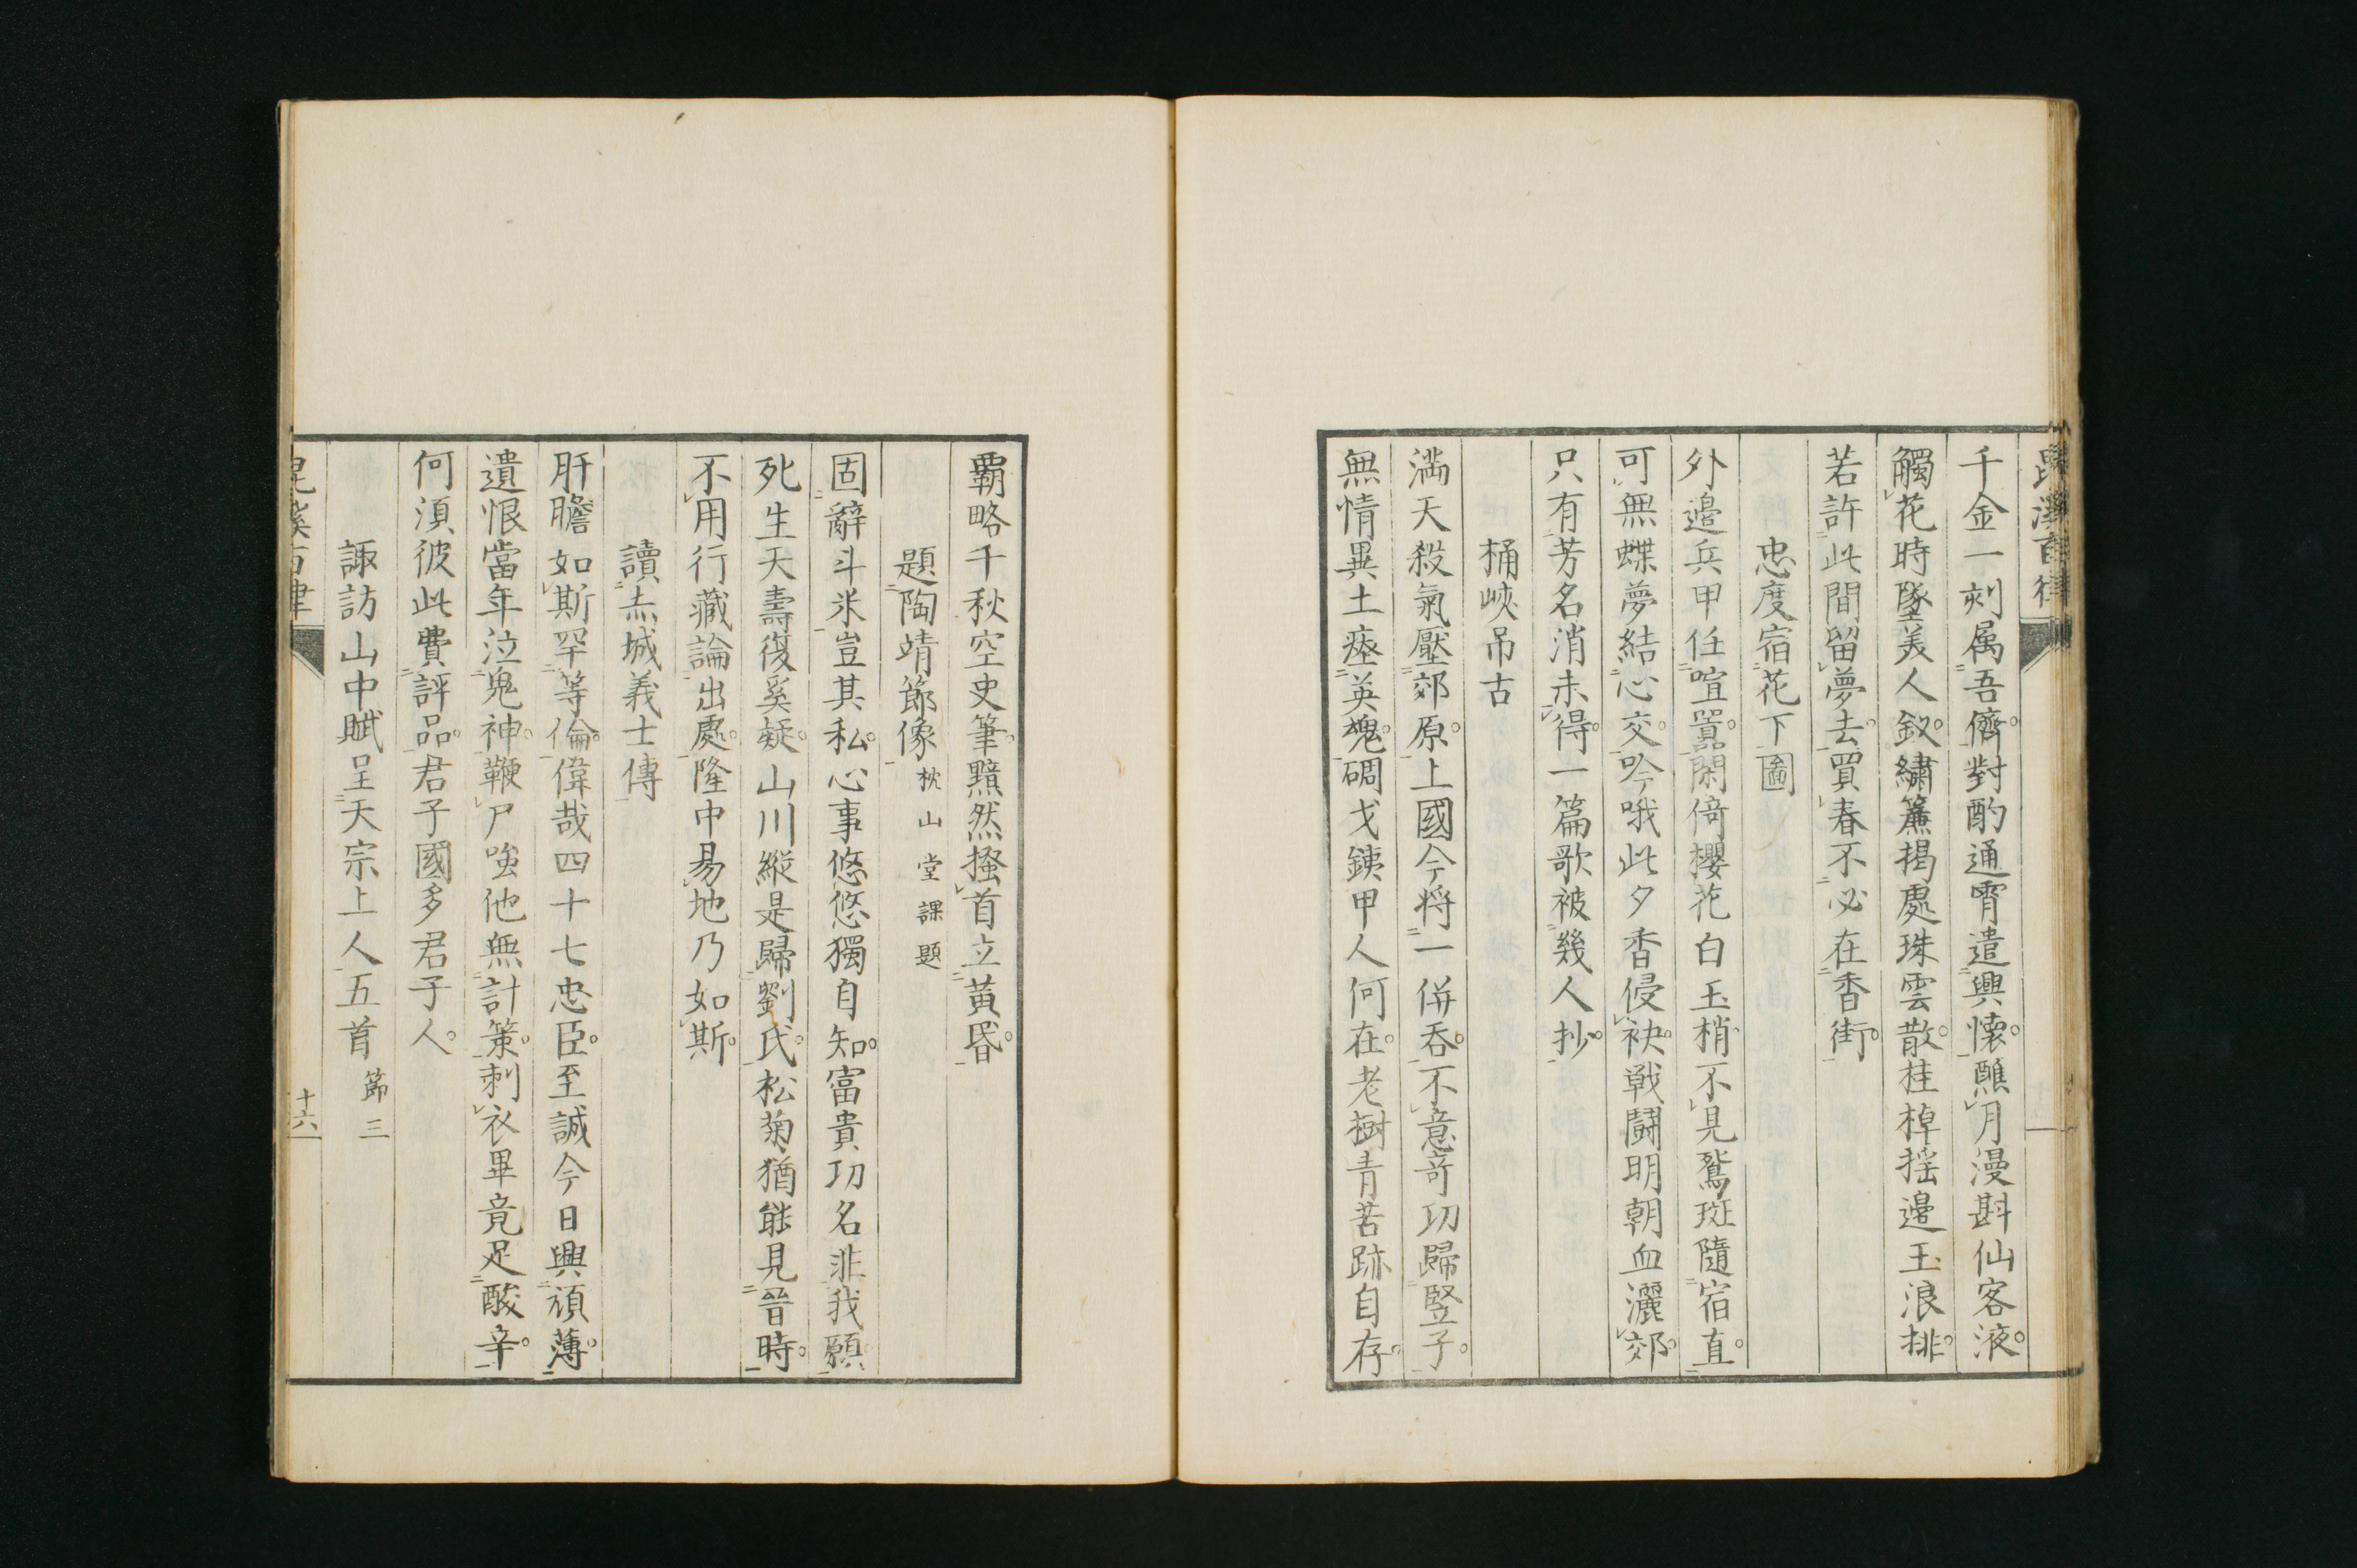 千金一刻属吾儕對酌通宵遣興懷醮月漫斟仙客液
觸花時墜美人釵繡簾掲處珠雲散桂棹揺邊玉浪排
若許此間留夢去買春不必在香街
忠度宿花下圖
外邊兵甲任喧囂閑倚櫻花白玉梢不見鵞斑隨宿直
可無蝶夢結心交吟哦此夕香侵袂戦闘明朝血灑郊
只有芳名消未得一篇歌被幾人抄
桶峽吊古
満天殺氣壓郊原上國今将一併呑不意竒功歸竪子
無情異土瘞英魂碉戈銕甲人何在老樹青苔跡自存
覇略千秋空史筆黯然搔首立黄昏
題陶靖節像 枕山堂課題
固辭斗米豈其私心事悠悠獨自知富貴功名非我願
死生天壽復奚疑山川縦是歸劉氏松菊猶能見晉時
不用行藏論出處隆中易地乃如斯
讀赤城義士傳
肝膽如斯罕等倫偉哉四十七忠臣至誠今日興頑薄
遺恨當年泣鬼神鞭尸強他無計策刺衣畢竟足酸辛
何須彼此費評品君子國多君子人
諏訪山中賦呈天宗上人五首 節三
十六